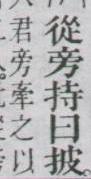 從旁持曰披
君旁牽之以